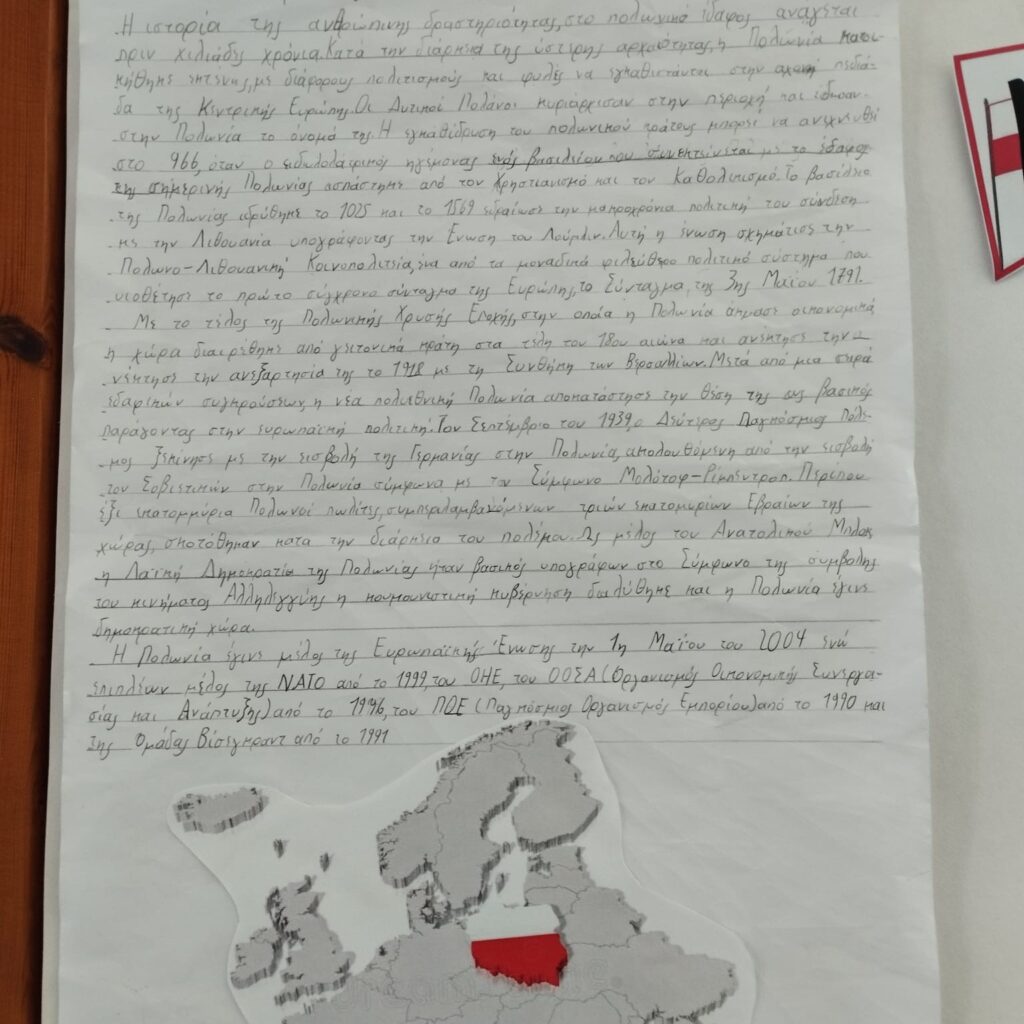 Η ιστορία της ανθρώπινης δραστηριότητας, στο πολωνικό έδαφος ανάγεται
πριν χιλιάδες χρόνια. Κατά την διάρκεια της ύστερης αρχαιότητας, η Πολωνία κατοι-
κήθηκε εκτενώς, με διάφορους πολιτισμούς και φυλές να εγκαθίστανται στην αχανή πεδιά-
δα της Κεντρικής Ευρώπης. Οι Δυτικοί Πολάνοι κυριάρχισαν στην περιοχή και έδωσαν
στην Πολωνία το όνομά της. Η εγκαθίδρυση του πολωνικού κράτους μπορεί να ανιχνευθεί
στο 966, όταν ο ειδωλολάτρικός ηγεμόνας ενός βασιλείου που συνεκτείνεται με το έδαφος
της σημερινής Πολωνίας ασπάστηκε από τον Χρηστιανισμό και τον Καθολικισμό. Το βασίλειο
της Πολωνίας ιδρύθηκε το 1025 και το 1569 εδραίωσε την μακροχρόνια πολιτική του σύνδεση
με την Λιθουανία υπογράφοντας την Ένωση του Λούμπλιν. Αυτή η ένωση σχημάτισε την
Πολωνο-Λιθουανική Κοινοπολιτεία, ένα από τα μοναδικά φιλελεύθερο πολιτικό σύστημα που
υιοθέτησε το πρώτο σύγχρονο σύνταγμα της Ευρώπης, το Σύνταγμα της 3ης Μαΐου 1791.
Με το τέλος της Πολωνικής Χρυσής Εποχής, στην οποία η Πολωνία άκμασε οικονομικά
η χώρα διαιρέθηκε από γειτονικά κράτη στα τέλη του 18ου αιώνα και ανέκτησε την
νέκτησε την ανεξαρτησία της το 1918 με τη Συνθήκη των Βερσαλλιών. Μετά από μια σειρά
εδαφικών συγκρούσεων, η νέα πολυεθνική Πολωνία αποκατάστησε την θέση της ως βασικός
παράγοντας στην ευρωπαϊκή πολιτική. Τον Σεπτέμβριο του 1939, ο Δεύτερος Παγκόσμιος Πόλε-
μος ξεκίνησε με την εισβολή της Γερμανίας στην Πολωνία, ακολουθόμενη από την εισβολή
των Σοβιετικών στην Πολωνία σύμφωνα με το Σύμφωνο Μολότοφ-Ρίμπεντροπ. Περίπου
έξι εκατομμύρια Πολωνοί πωλίτες, συμπεριλαμβανόμενων τριών εκατομυρίων Εβραίων της
χώρας, σκοτόθηκαν κατα την διάρκεια του πολέμου. Ως μέλος του Ανατολικού Μπλοκ
η Λαϊκή Δημοκρατία της Πολωνίας ήταν βασικός υπογράφων στο Σύμφωνο της συμβολής
του κινήματος Αλληλεγγύης η κομουνιστική κυβέρνηση διαλύθηκε και η Πολωνία έγινε
δημοκρατική χώρα.
Η Πολωνία έγινε μέλος της Ευρωπαϊκής Ένωσης την 1η Μαΐου του 2004 ενώ
επιπλέων μέλος της ΝΑΤΟ από το 1999, του ΟΗΕ, του ΟΟΣΑ (Οργανισμός Οικονομικής Συνεργα-
σίας και Ανάπτυξης) από το 1996, του ΠΟΕ (Παγκόσμιος Οργανισμός Εμπορίου) από το 1990 και
της Ομάδας Βίσεγκραντ από το 1991